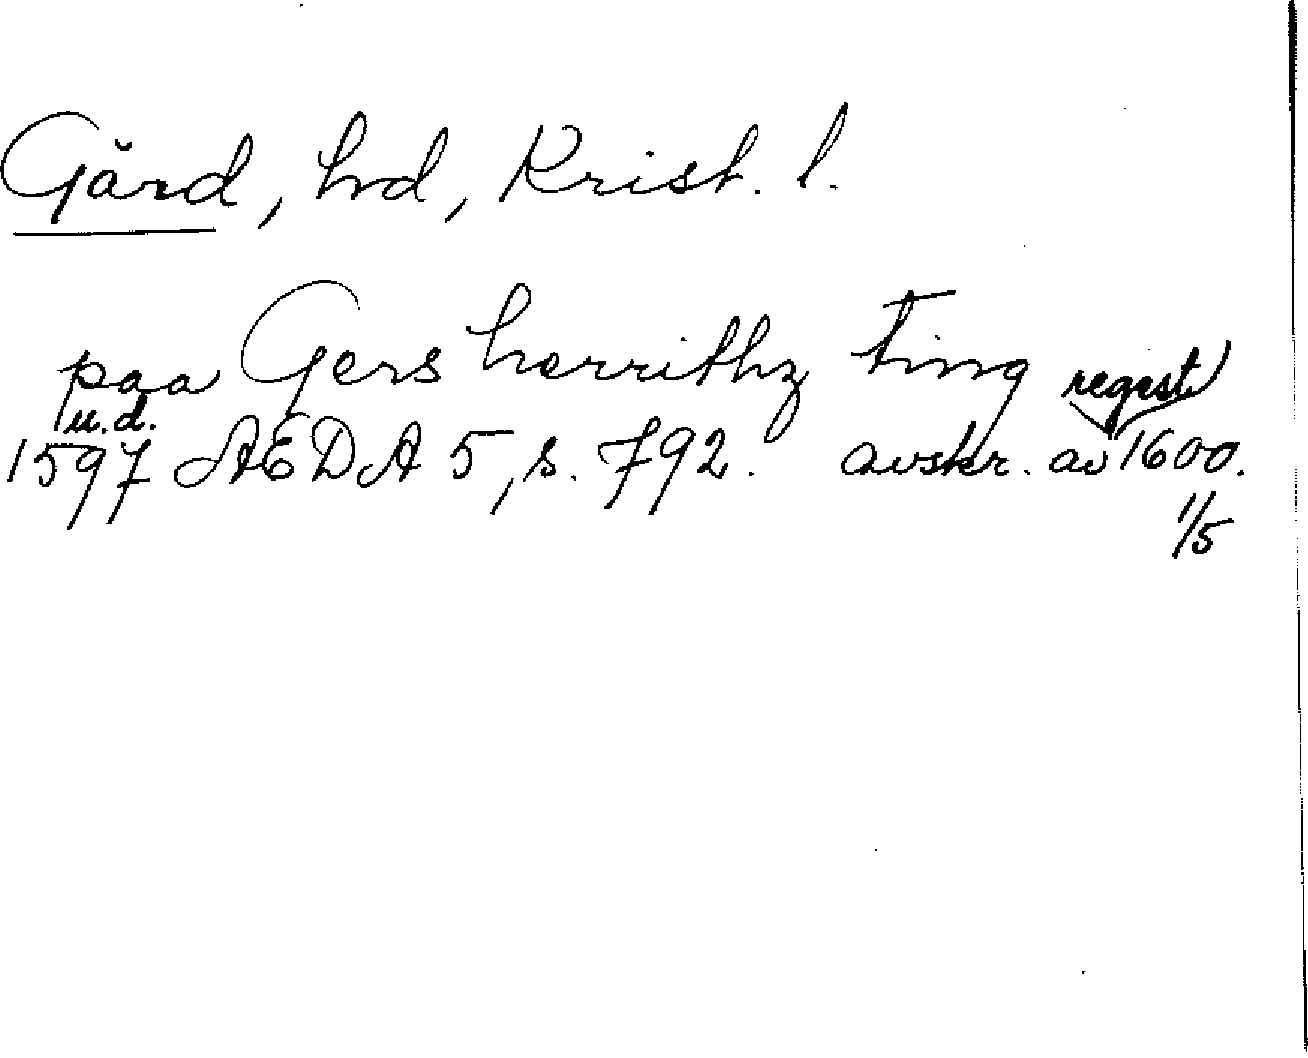 Gärd, hd, Krist. l.
paa Gers herrithz ting
u.d. regest
1597 AEDA 5, s. 792. avskr. av 1600.
1/5